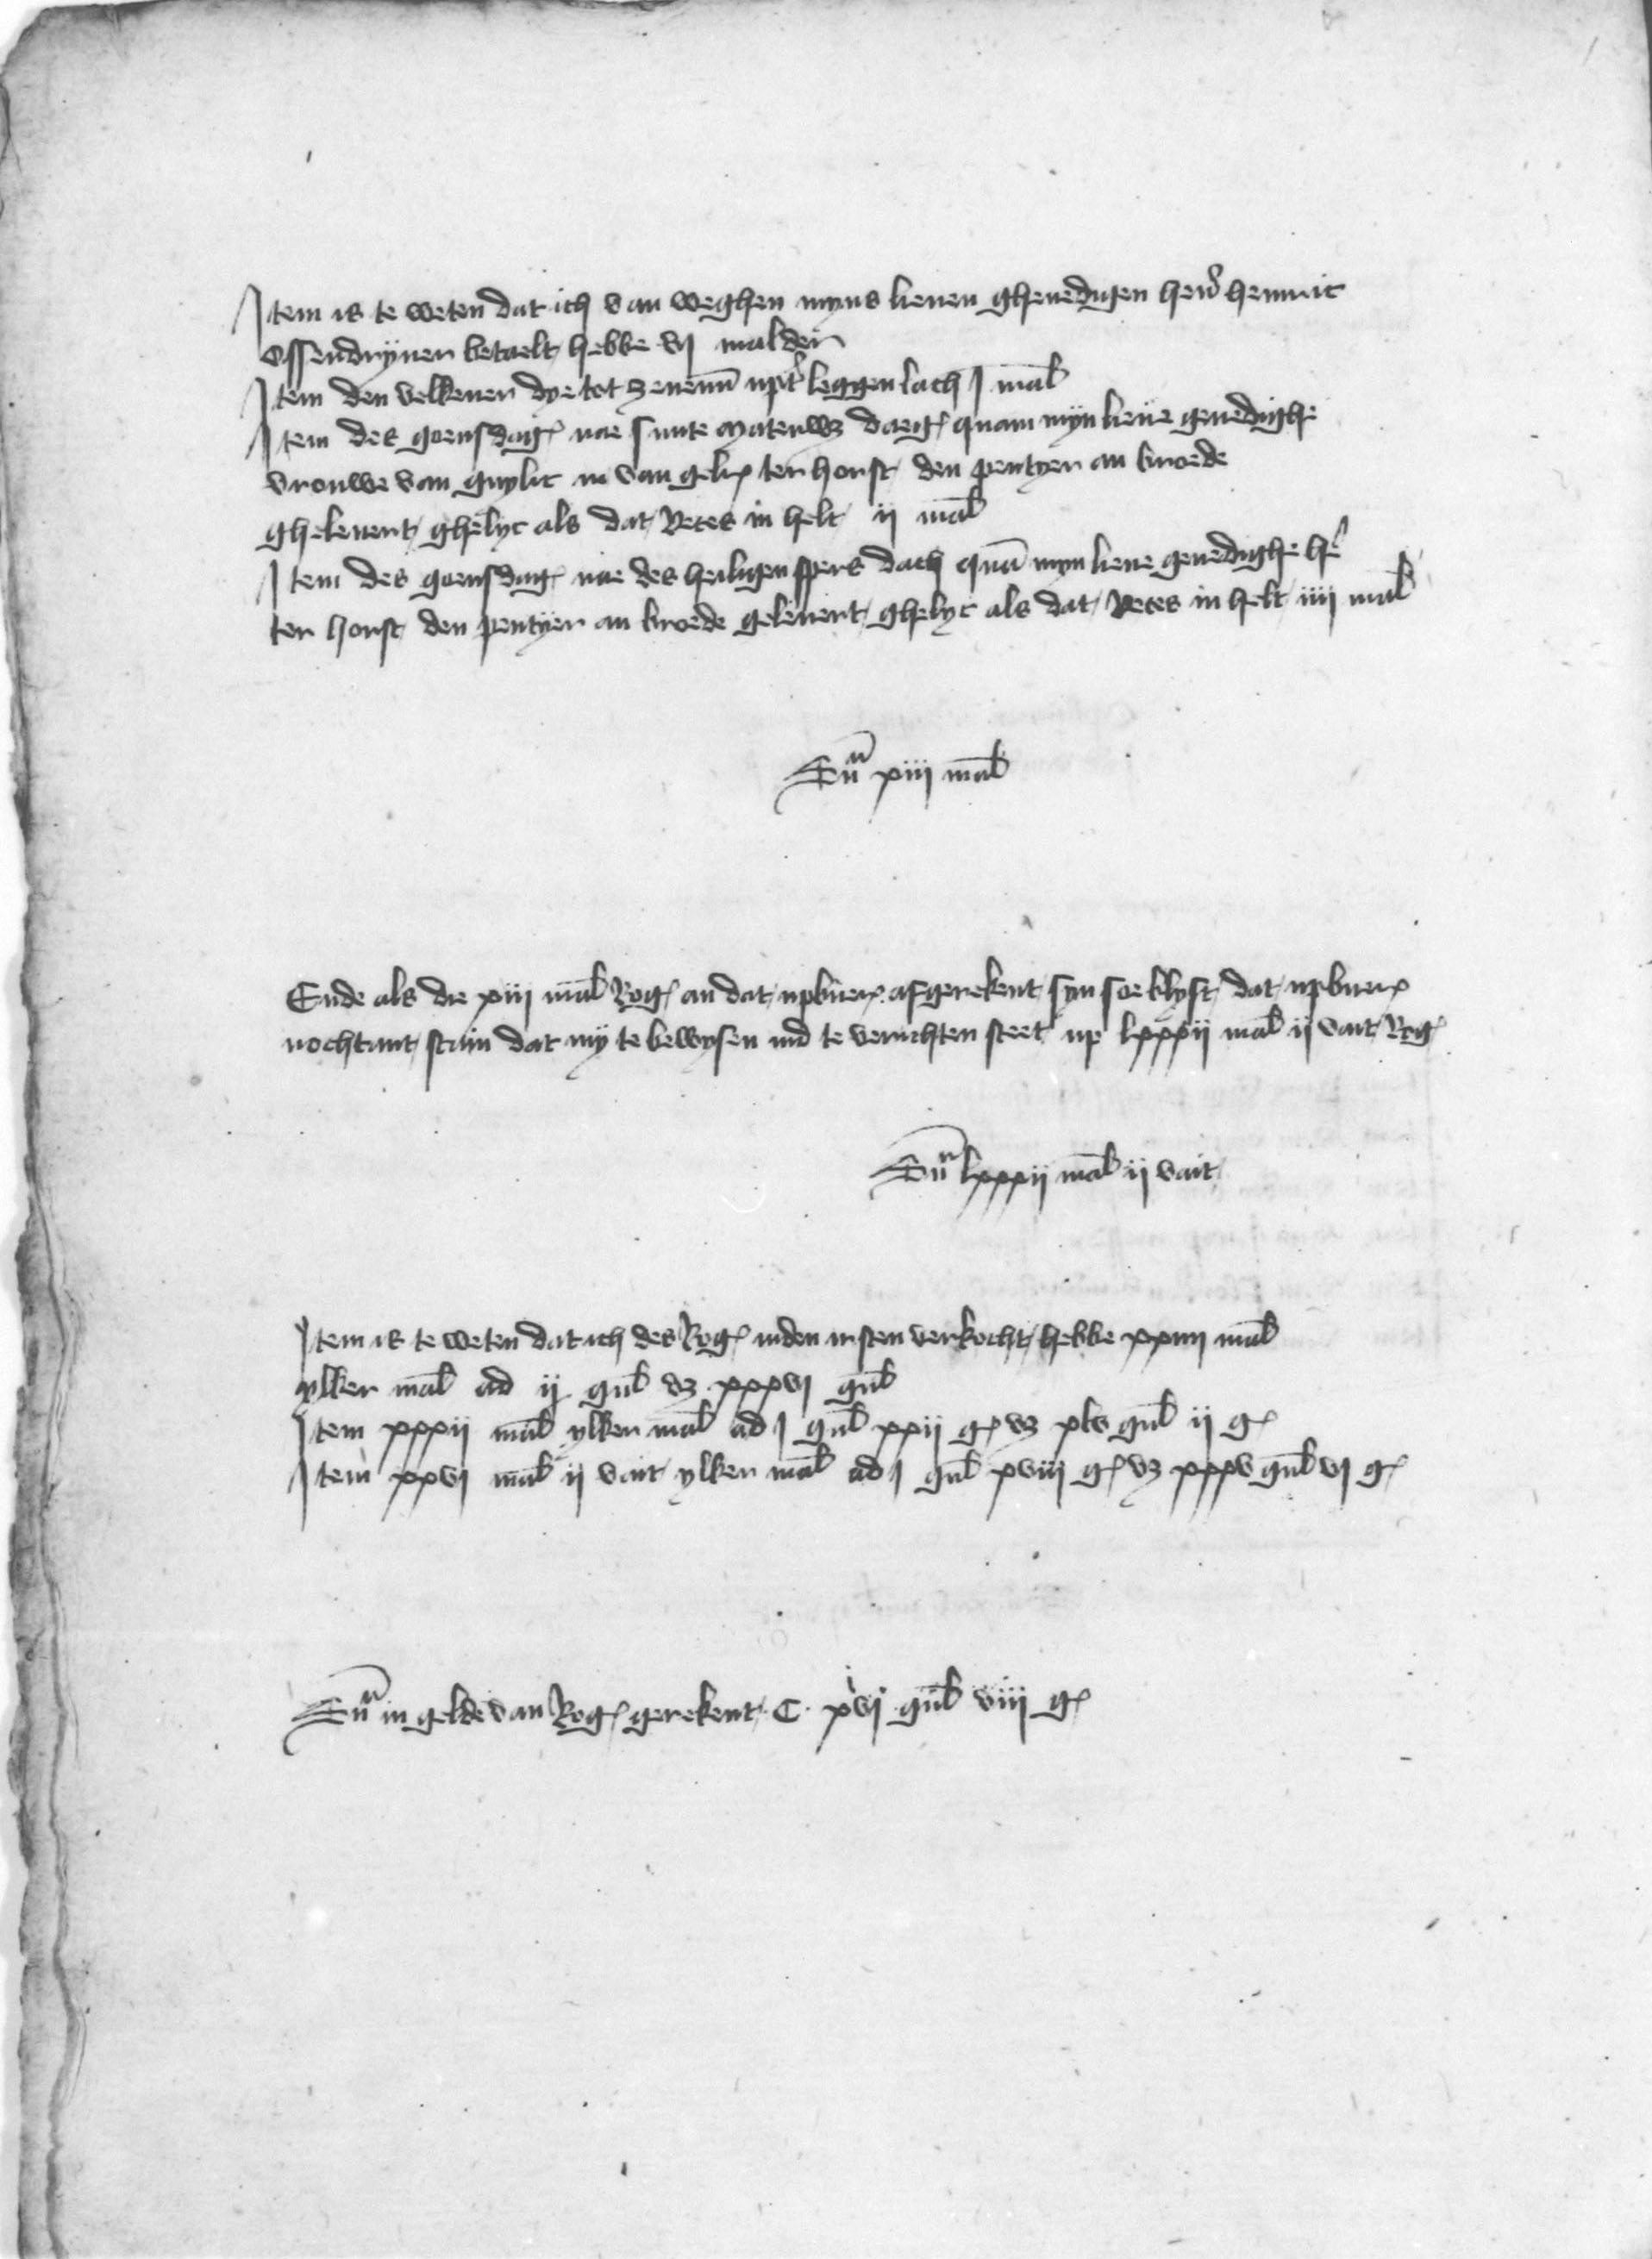 Item is te weten dat ich van weghen myns lieven ghenedigen hern henric
Ossendryver betaelt hebbe vj malder
Item den velkener dye tot zevenn upt leggen lach j mal
Item des goensdag nae sunte Mateuws daeg quam myn lieve genedighe
vrouwe van guylic in van gelr ter horst den pentyer an broede
ghelevert ghelyc als dat Reces in helt ij mal
Item des goensdag nae des heiligen spers dach qua myn lieve genedighe he
ter horst den pentyer an broede gelevert ghelyc als dat Reces in helt iiij mal
Sum xiij mal
Ende als die xiij mal Rog an dat upbuer afgerekent syn soe blyft dat upbuer
nochtant stain dat my te bewysen ind te verrichten steet up lxxxij mal ij vait Rog
Sum lxxxij mal ij vait
Item is te weten dat ich des Rog inden irsten verkocht hebbe xxiiij mal
ylker mal ad ij gul vz xxxvj gul
Item xxxij mal ylker mal ad j gul xxij g vz xlv gul ij g
Item xxvj mal ij vait ylker mal ad j gul xviij g vz xxxv gul vj g
Sum in gelde van Rog gerekent C xvj gul viij g